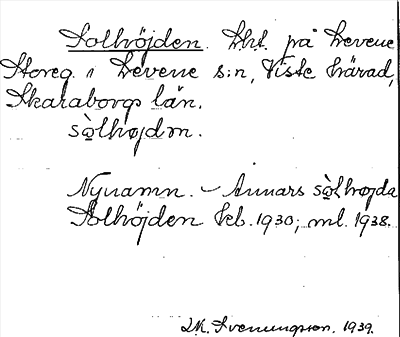 Solhöjden. Lht. på Levene
Storeg. i Levene s:n, Viste härad,
Skaraborgs län.
sòlhøjdn.
Nynamn. – Annars sòlhøjda
Solhöjden Feb. 1930; ml. 1938.
Svenungsson. 1939.